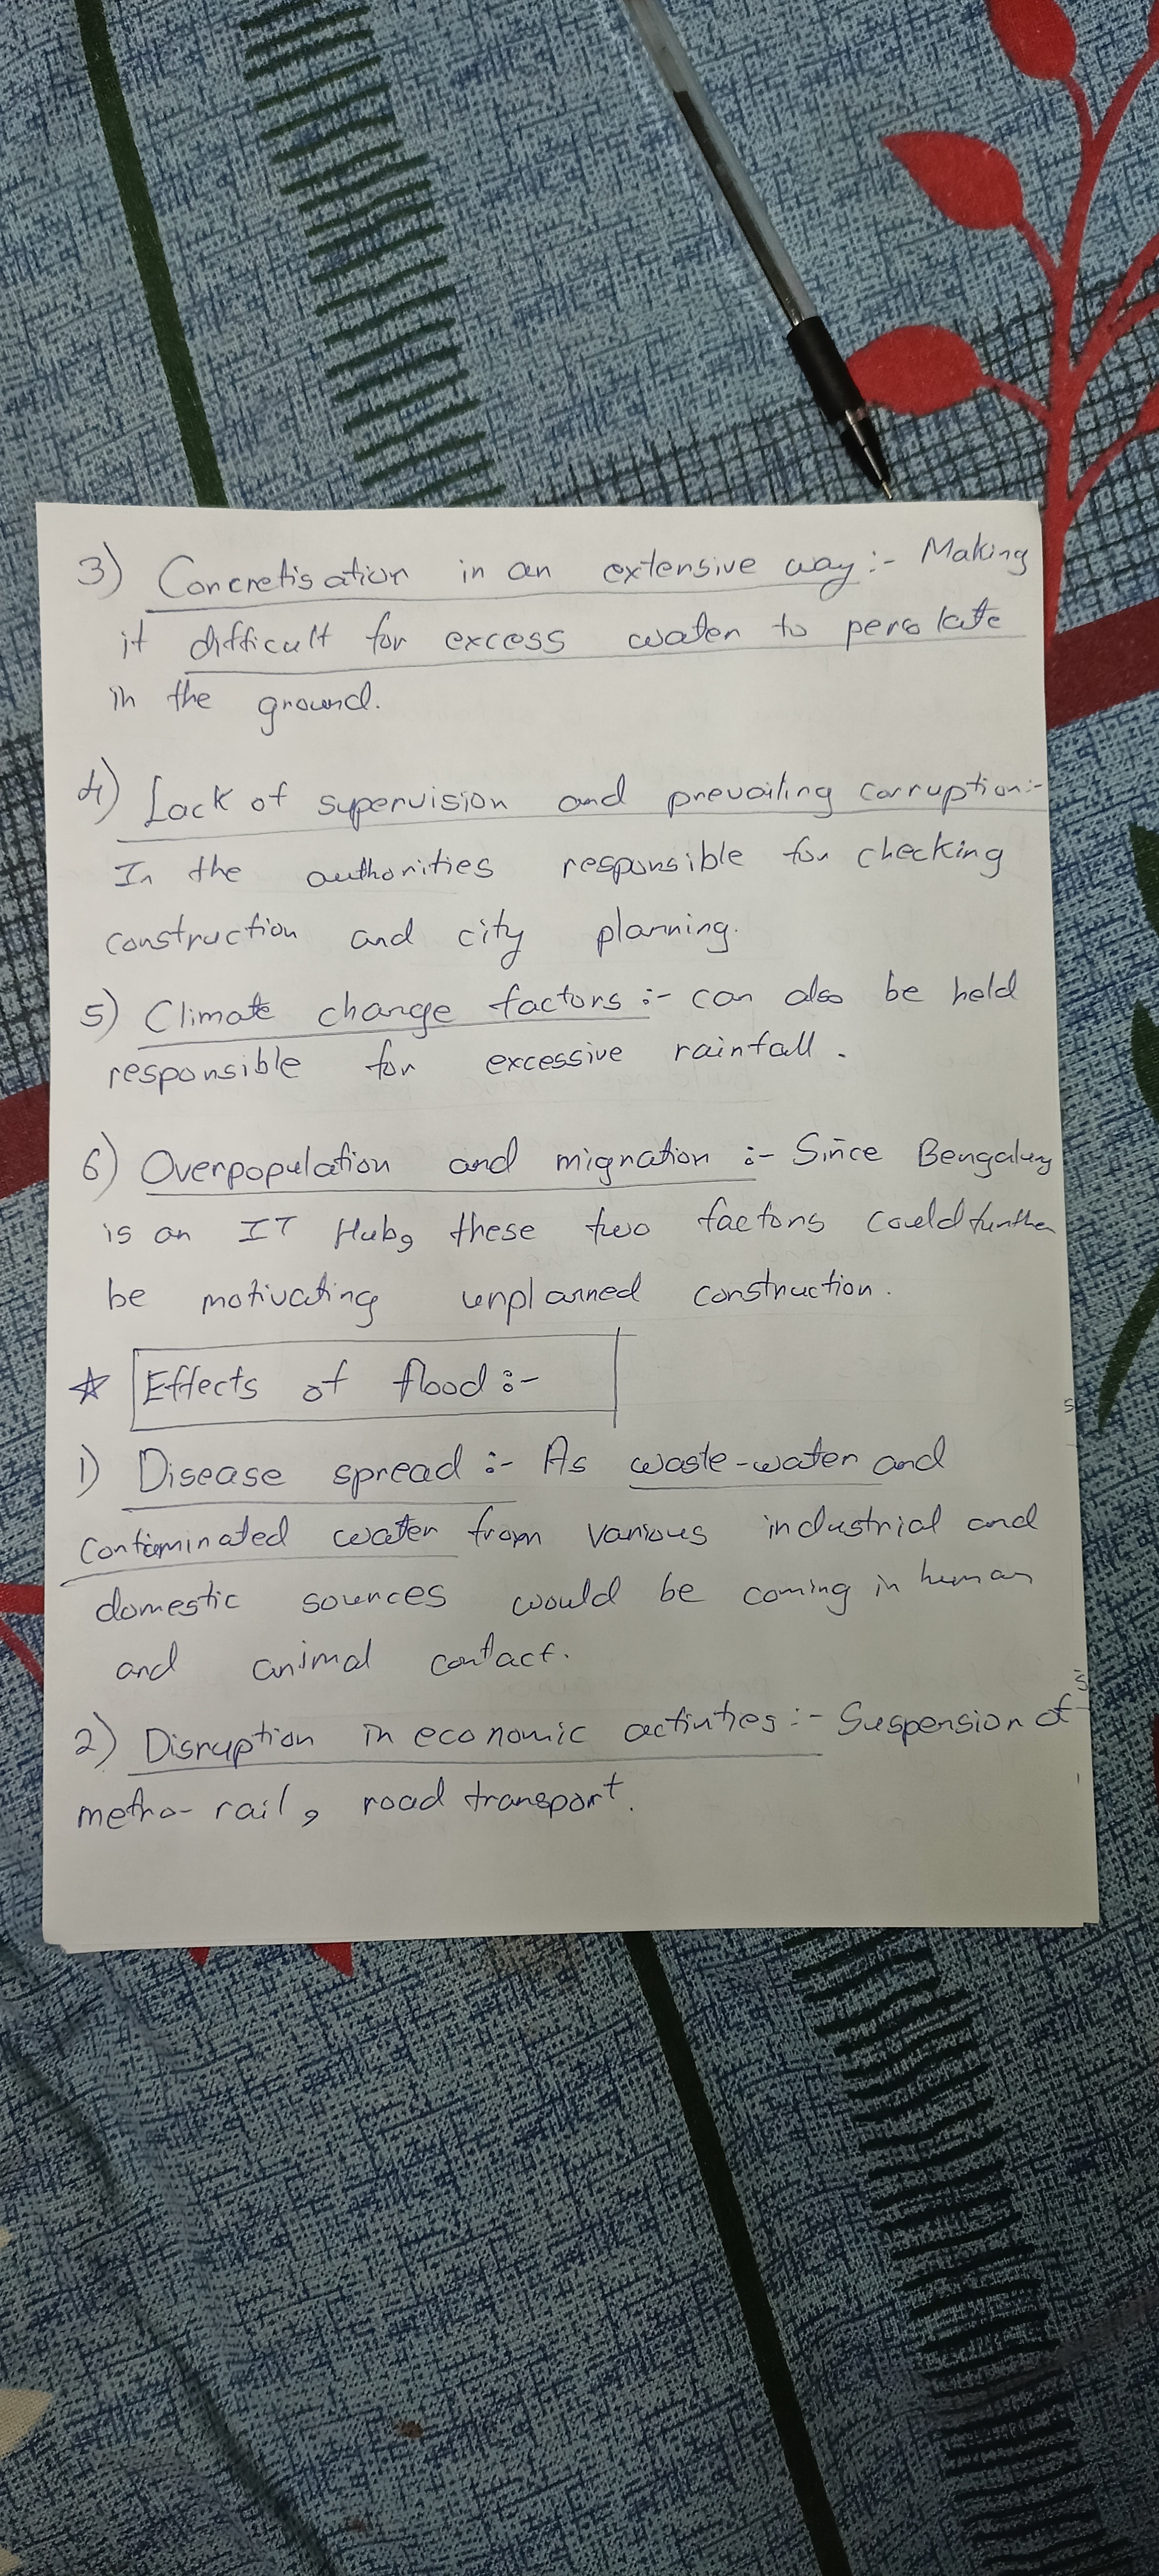 3) Concretisation in an extensive way :- Making
it difficult for excess water to percolate
in the ground.
4) Lack of supervision and prevailing corruption:-
In the authorities responsible for checking
construction and city planning.
5) Climate change factors :- can also be held
responsible for excessive rainfall.
6) Overpopulation and migration :- Since Bengaluru
is an IT Hub, these two factors could further
be motivating unplanned construction.
☆ Effects of flood :-
1) Disease spread :- As waste-water and
contaminated water from various industrial and
domestic sources would be coming in human
and animal contact.
2) Disruption in economic activities :- Suspension of
metro-rail, road transport.